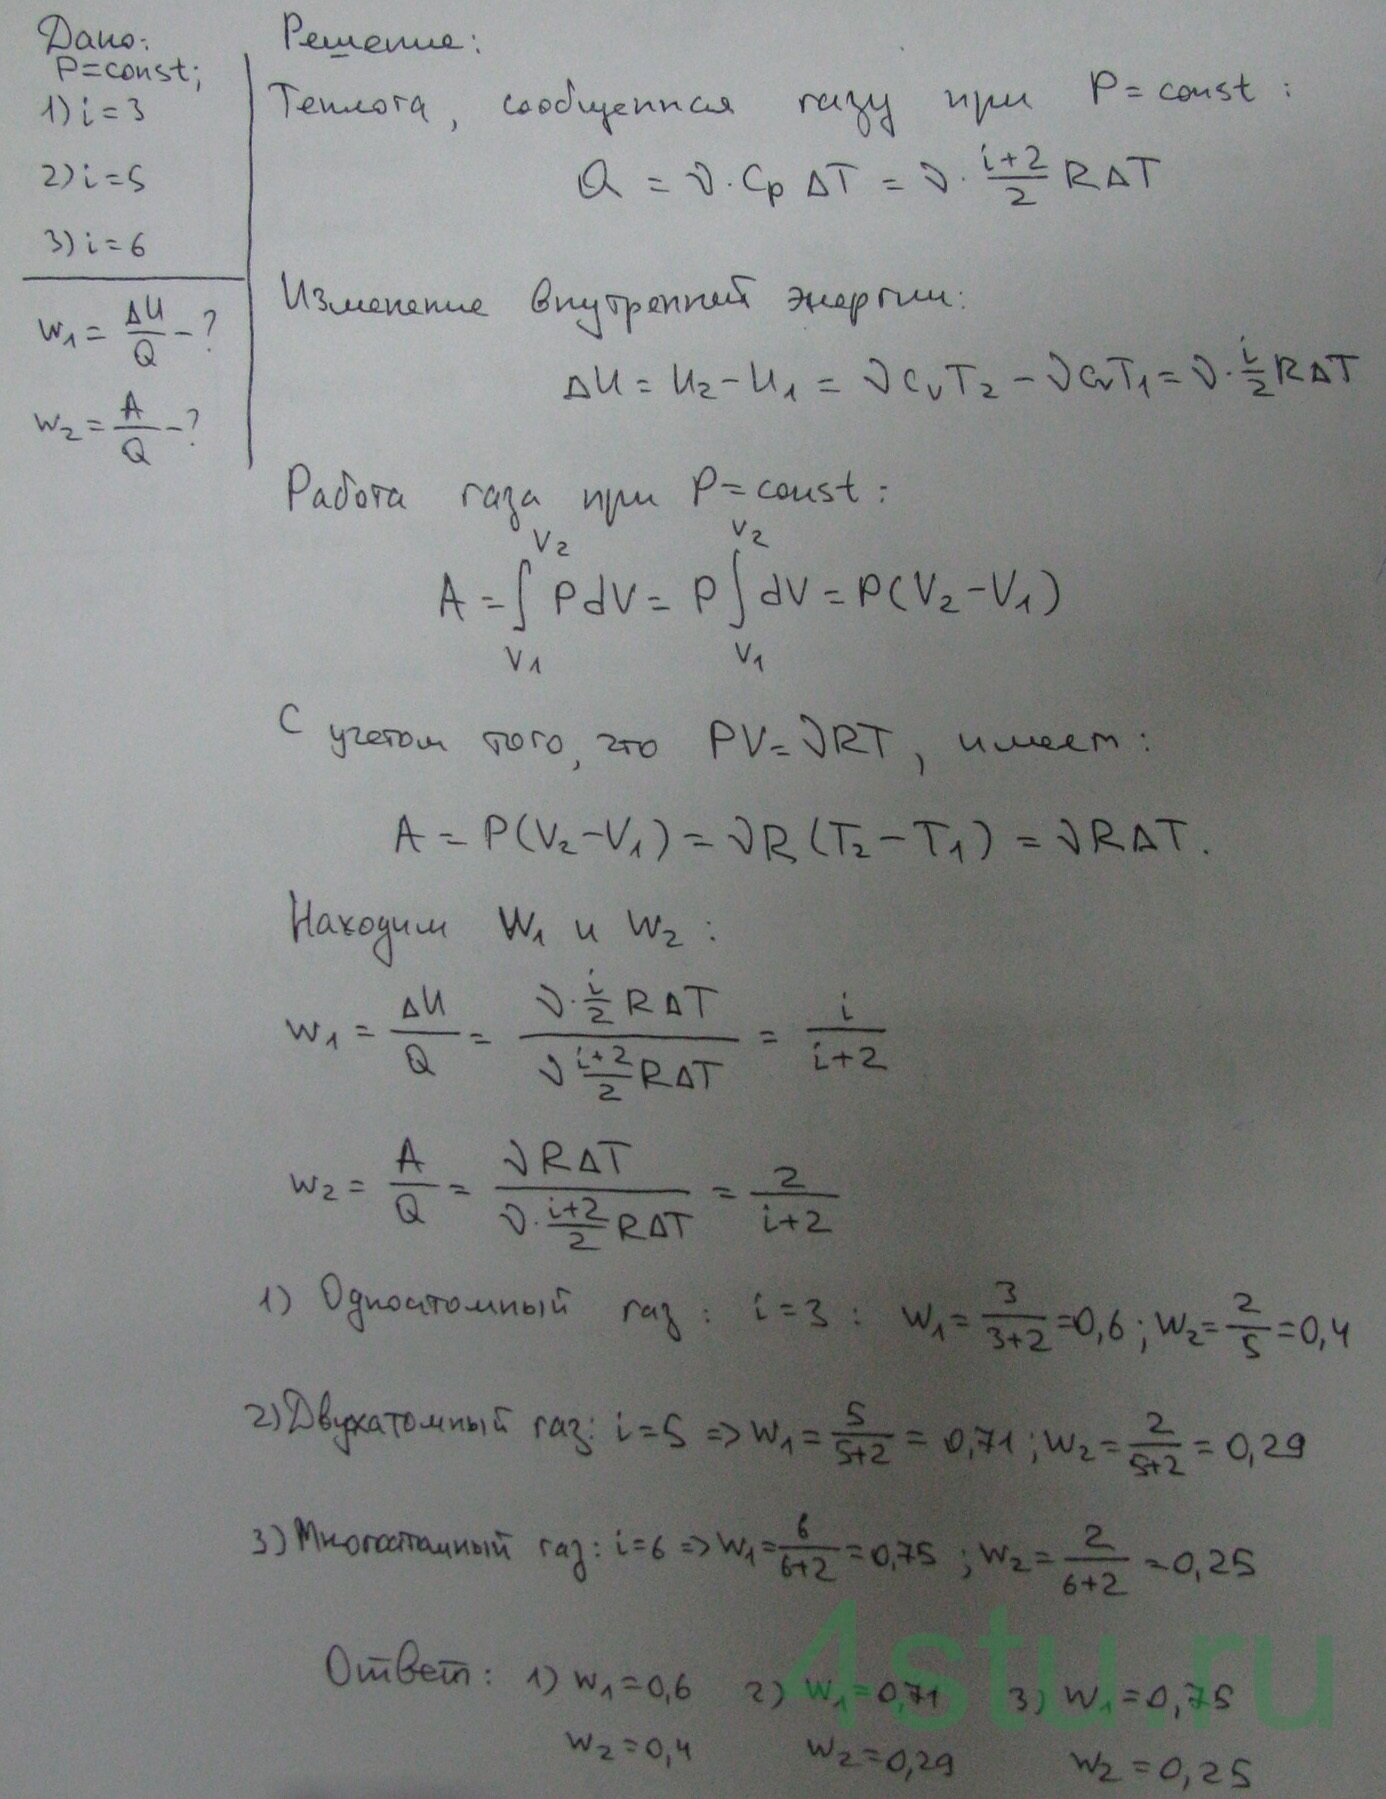 Дано:
P=const;
1) i=3
2) i=5
3) i=6
W₁ = ΔU/Q - ?
W₂ = A/Q - ?
Решение:
Теплота, сообщенная газу при P=const:
Q = ν·Cp ΔT = ν· (i+2)/2 RΔT
Изменение внутренней энергии:
ΔU = U₂-U₁ = νCvT₂ - νCvT₁ = ν· i/2 RΔT
Работа газа при P=const:
A = ∫ PdV = P ∫ dV = P(V₂-V₁)
V₂ V₂
V₁ V₁
С учетом того, что PV=νRT, имеем:
A = P(V₂-V₁) = νR(T₂-T₁) = νRΔT.
Находим W₁ и W₂:
W₁ = ΔU/Q = (ν· i/2 RΔT)/(ν (i+2)/2 RΔT) = i/(i+2)
W₂ = A/Q = (νRΔT)/(ν· (i+2)/2 RΔT) = 2/(i+2)
1) Одноатомный газ: i=3: W₁ = 3/(3+2) = 0,6; W₂ = 2/5 = 0,4
2) Двухатомный газ: i=5 => W₁ = 5/(5+2) = 0,71; W₂ = 2/(5+2) = 0,29
3) Многоатомный газ: i=6 => W₁ = 6/(6+2) = 0,75; W₂ = 2/(6+2) = 0,25
Ответ: 1) W₁=0,6 2) W₁=0,71 3) W₁=0,75
W₂=0,4 W₂=0,29 W₂=0,25
4stu.ru